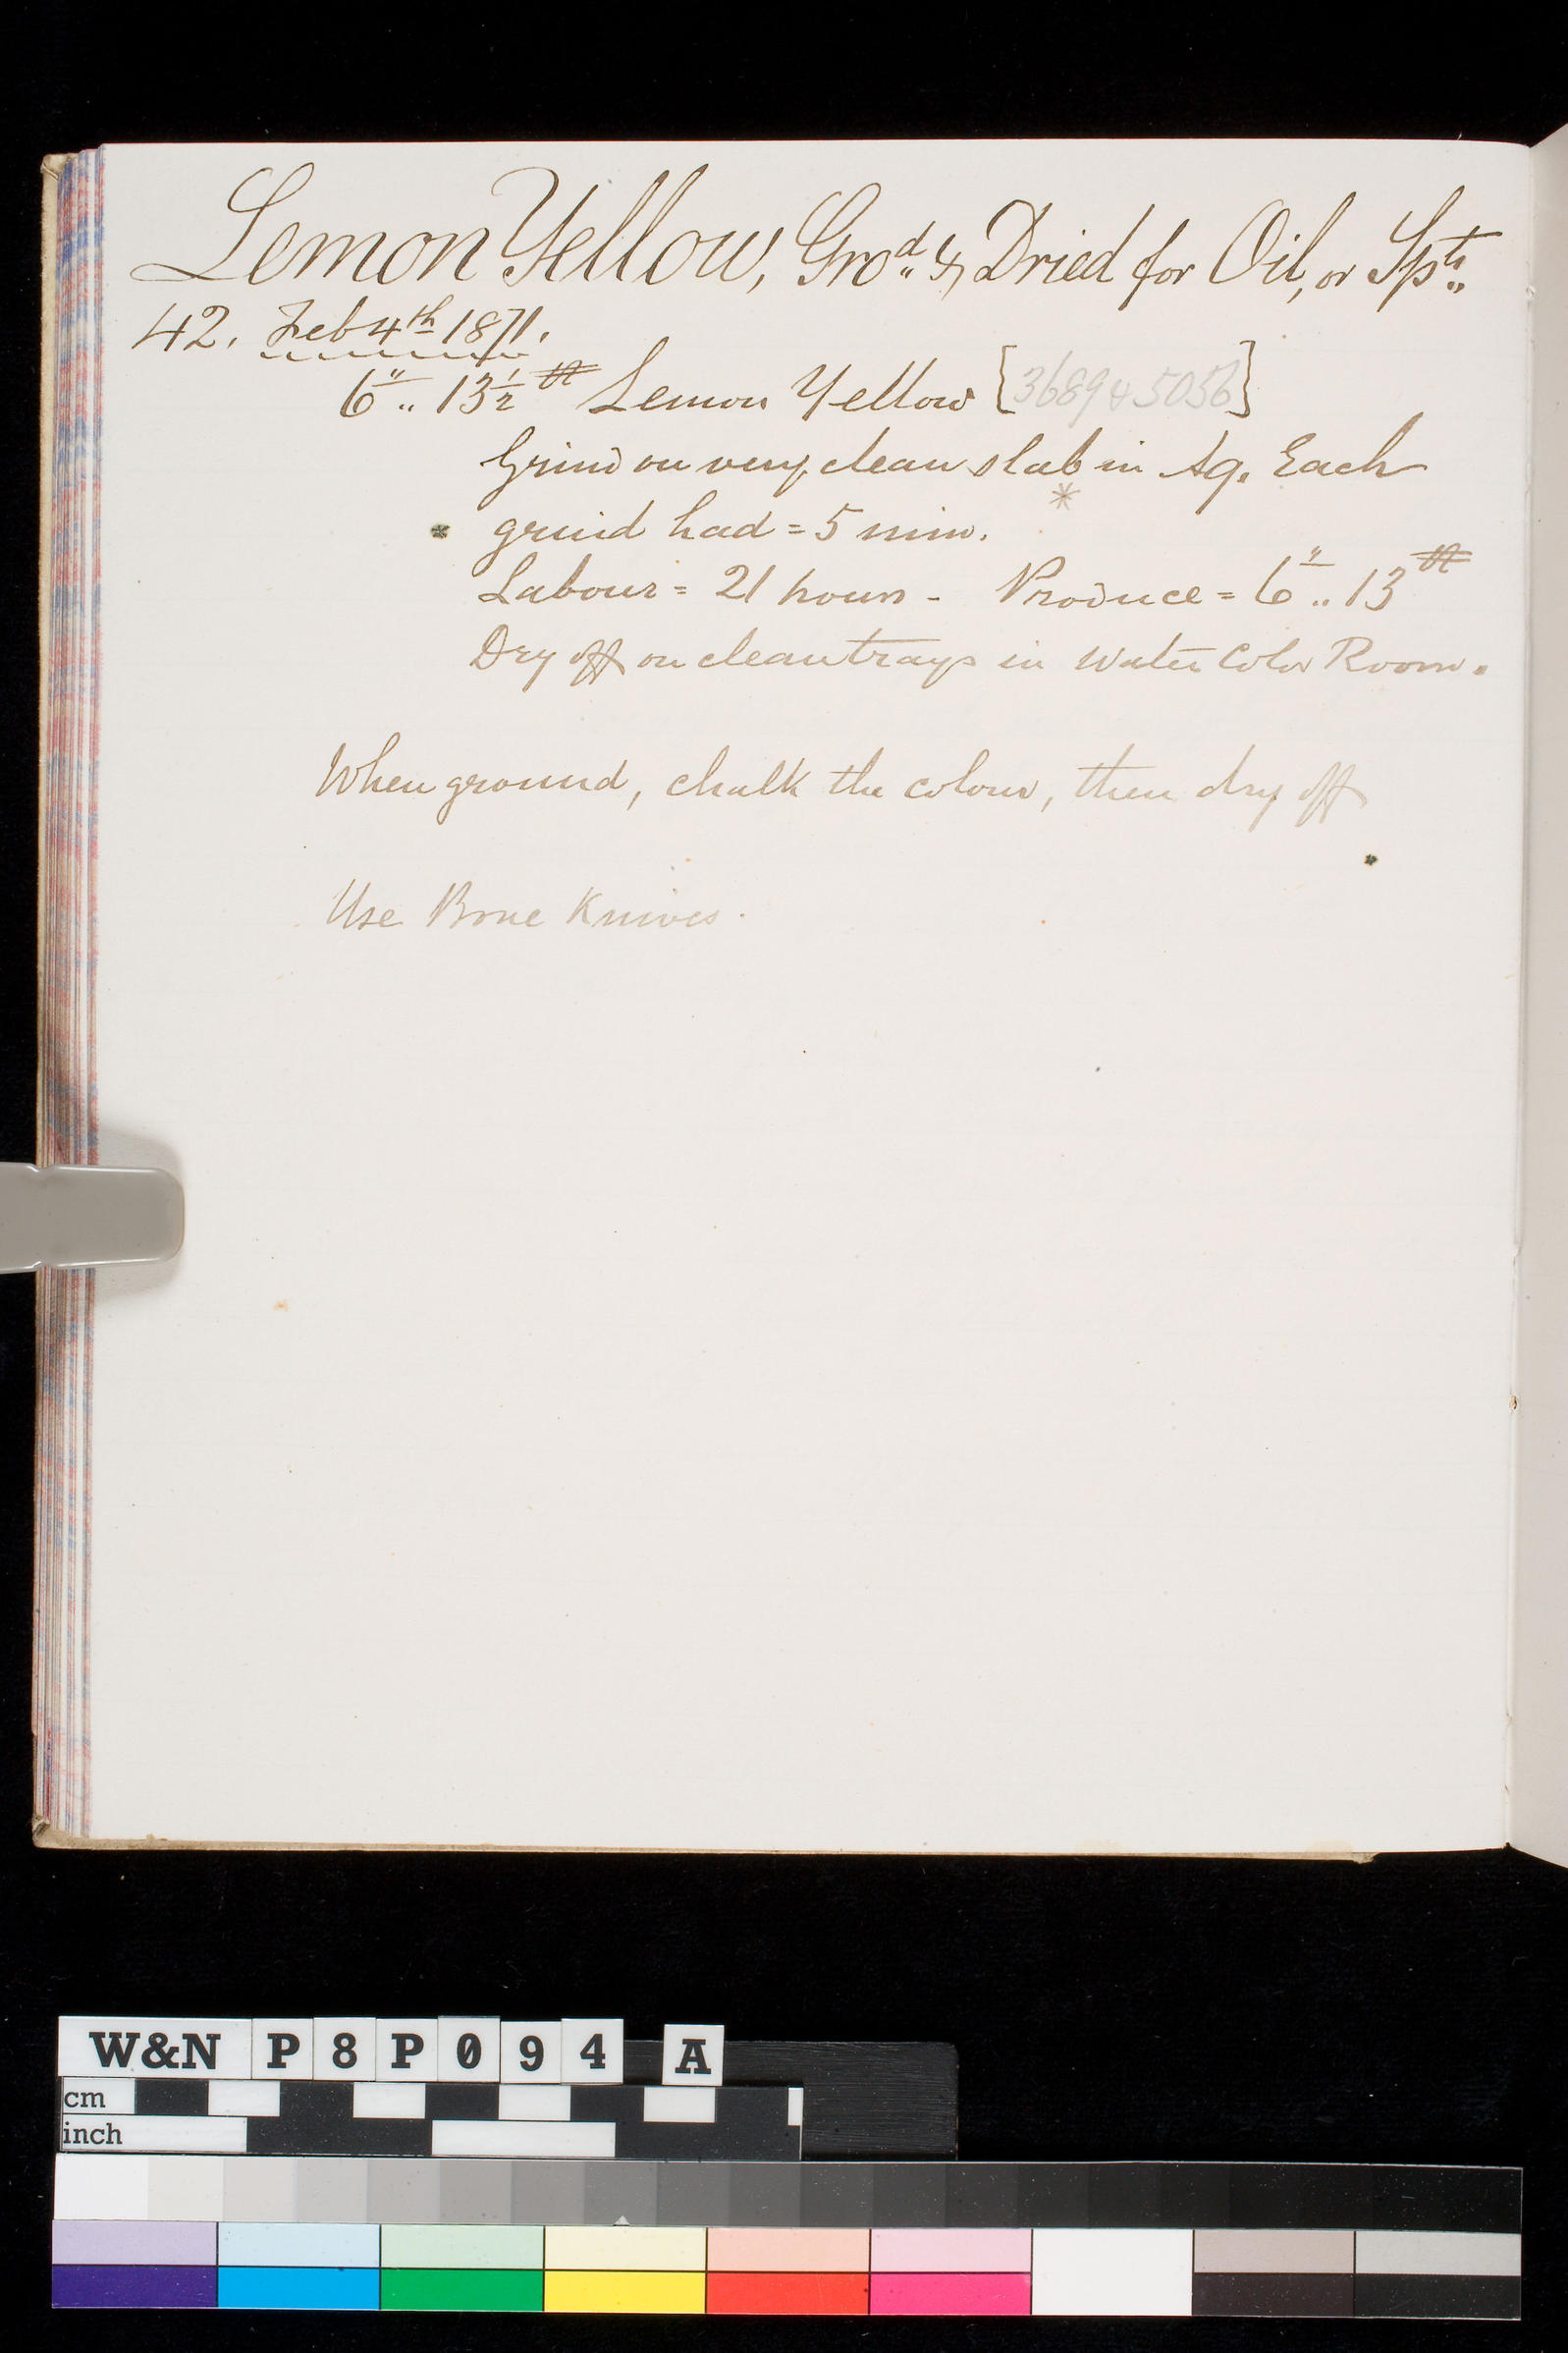 Lemon Yellow, Gro^d.. & Dried for Oil, or Sp^ts..
42. Feb 4th 1871.
6" .. 13½ ℔ Lemon Yellow [3689 & 5056]
Grind on very clean slab in Aq. Each
*
* grind had = 5 min.
Labour = 21 hours - Produce = 6" .. 13 ℔
Dry off on clean trays in Water Color Room.
When ground, chalk the colour, then dry off
Use Bone Knives.
W&N P8P094 A
cm
inch